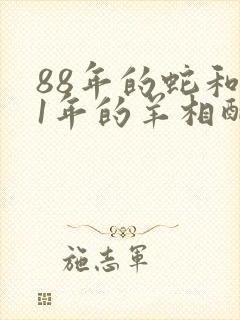 88年的蛇和
1年的羊相配
施志军